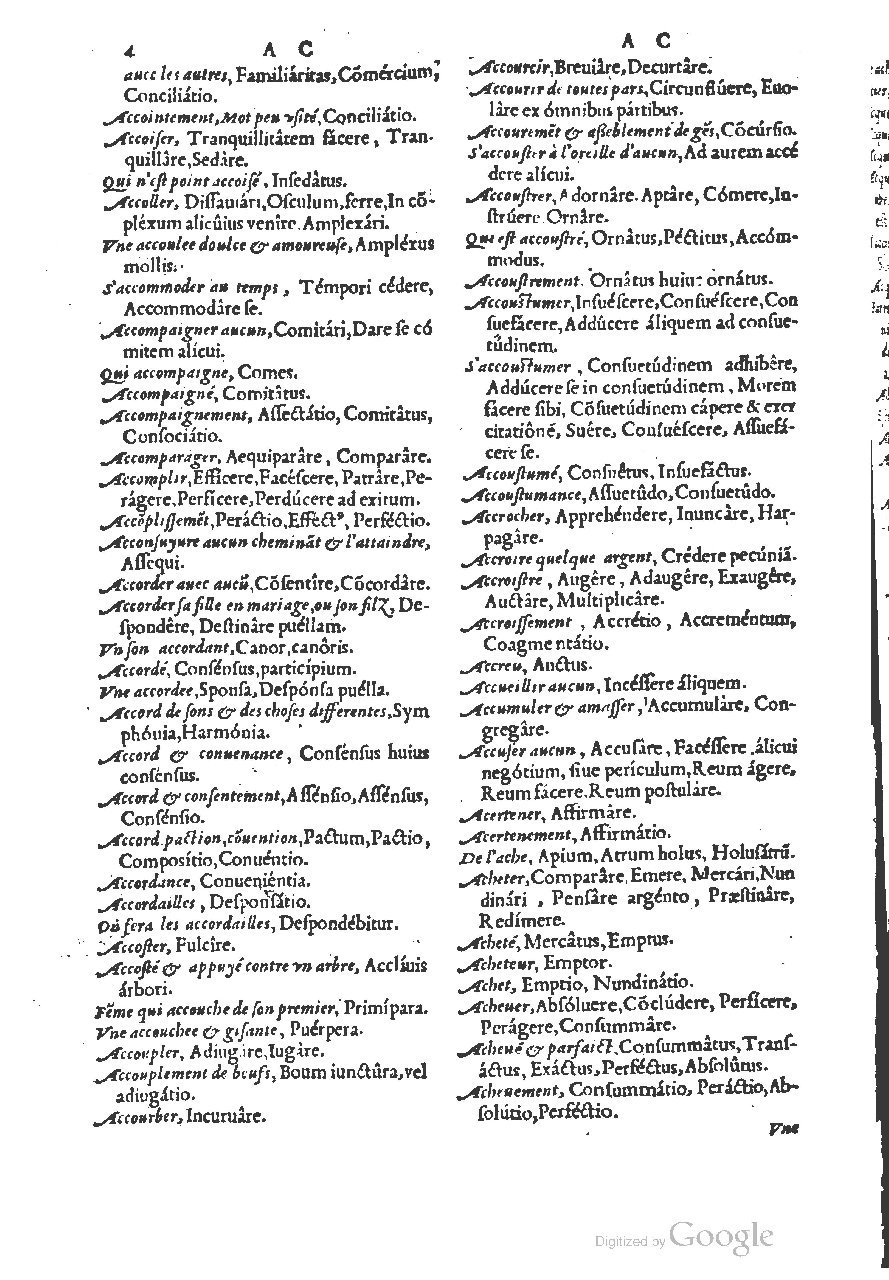 4 A C
auec les autres, Familiáritas, Cõmércium,
Conciliátio.
Accointement, Mot peu vsité, Conciliátio.
Accoiser, Tranquillitâtem fácere, Tran-
quillâre, Sedâre.
Qui n'est point accoisé, Insedâtus.
Accoller, Dissauiári, Osculum, ferre, In cõ-
pléxum alicûius venîre. Amplexári.
Vne accoulee doulce & amoureuse, Ampléxus
mollis.
S'accommoder au temps, Témpori cédere,
Accommodâre se.
Accompaigner aucun, Comitári, Dare se có
mitem alícui.
Qui accompaigne, Comes.
Accompaigné, Comitâtus.
Accompaignement, Assectátio, Comitâtus,
Consociátio.
Accomparáger, Aequiparâre, Comparâre.
Accomplir, Efficere, Facéscere, Patrâre, Pe-
rágere, Perficere, Perdúcere ad exitum.
Accõplissemẽt, Peráctio, Effectꝰ, Perféctio.
Acconsuyure aucun cheminãt & l'attaindre,
Assequi.
Accorder auec aucũ, Cõsentîre, Cõcordâre.
Accorder sa fille en mariage, ou son filz, De-
spondêre, Destinâre puéllam.
Vn son accordant, Canor, canôris.
Accordé, Consénsus, participium.
Vne accordee, Sponsa, Despónsa puélla.
Accord de sons & des choses differentes, Sym
phónia, Harmónia.
Accord & conuenance, Consénsus huius
consénsus.
Accord & consentement, Assénsio, Assénsus,
Consénsio.
Accord, paction, cõuention, Pactum, Pactio,
Composítio, Conuéntio.
Accordance, Conueniéntia.
Accordailles, Desponsátio.
Où fera les accordailles, Despondébitur.
Accoster, Fulcîre.
Accosté & appuyé contre vn arbre, Acclíuis
árbori.
Fẽme qui accouche de son premier, Primípara.
Vne accouchee & gisante, Puérpera.
Accoupler, Adiugáre, Iugâre.
Accouplement de beufs, Boum iunctûra, vel
adiugátio.
Accourber, Incuruâre.
A C
Accourcir, Breuiâre, Decurtâre.
Accourir de toutes pars, Circunflúere, Euo-
lâre ex ómnibus pártibus.
Accouremẽt & assẽblement de gẽs, Cõcúrsio.
S'accouster à l'oreille d'aucun, Ad aurem accé
dere alícui.
Accoustrer, Adornâre. Aptâre, Cómere, In-
strúere. Ornâre.
Qui est accoustré, Ornâtus, Péctitus, Accóm-
modus.
Accoustrement. Ornatus huius ornátus.
Accoustumer, Insuéscere, Consuéscere, Con
suefácere, Addúcere áliquem ad consue-
tûdinem.
S'accoustumer, Consuetúdinem adhibêre,
Addúcere se in consuetúdinem, Morem
fácere sibi, Cõsuetúdinem cápere & exer
citatiônẽ, Suére, Consuéscere, Assuefá-
cere se.
Accoustumé, Consuêtus, Insuefáctus.
Accoustumance, Assuetûdo, Consuetûdo.
Accrocher, Apprehéndere, Inuncâre, Har-
pagâre.
Accroire quelque argent, Crédere pecúniã.
Accroistre, Augêre, Adaugêre, Exaugêre,
Auctâre, Multiplicâre.
Accroissement, Accrétio, Accreméntum,
Coagmentátio.
Accreu, Auctus.
Accueillir aucun, Incéssere áliquem.
Accumuler & amasser, Accumulâre, Con-
gregâre.
Accuser aucun, Accusâre, Facéssere álicui
negótium, siue perículum, Reum ágere,
Reum fácere. Reum postulâre.
Acertener, Affirmâre.
Acertenement, Affirmátio.
De l'ache, Apium, Atrum holus, Holusátrũ.
Acheter, Comparâre, Emere, Mercári, Nun
dinári, Pensâre argénto, Præstinâre,
Redímere.
Acheté, Mercâtus, Emptus.
Acheteur, Emptor.
Achet, Emptio, Nundinátio.
Acheuer, Absóluere, Cõclúdere, Perficere,
Perágere, Consummâre.
Acheué & parfaict, Consummâtus, Trans-
áctus, Exáctus, Perféctus, Absolûtus.
Acheuement, Consummátio, Peráctio, Ab-
solútio, Perféctio.
Vne
Digitized by Google